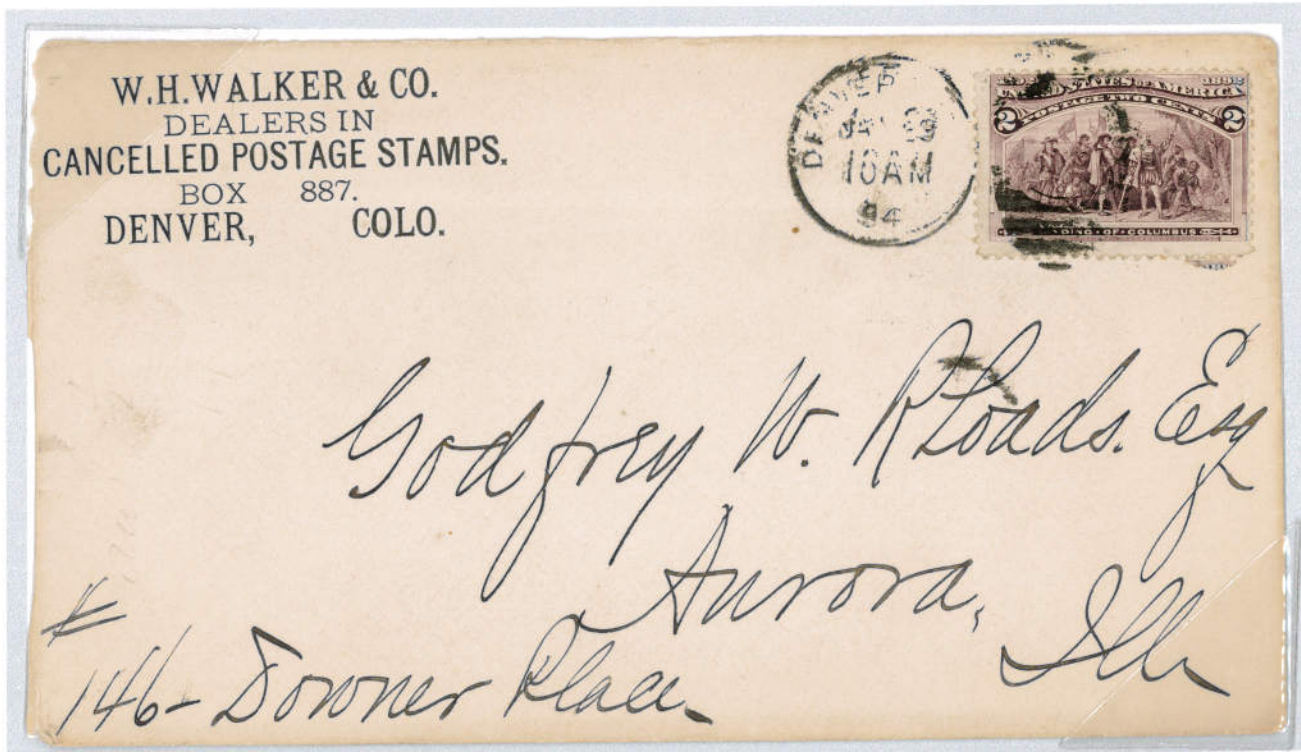 W.H.WALKER & CO.
DEALERS IN
CANCELLED POSTAGE STAMPS.
BOX 887.
DENVER, COLO.
DENVER
10AM
94
1892
UNITED STATES OF AMERICA
POSTAGE TWO CENTS
2 2
OF COLUMBUS
Godfrey W. Rhoads. Esq
Aurora,
Ills
#
146- Downer Place